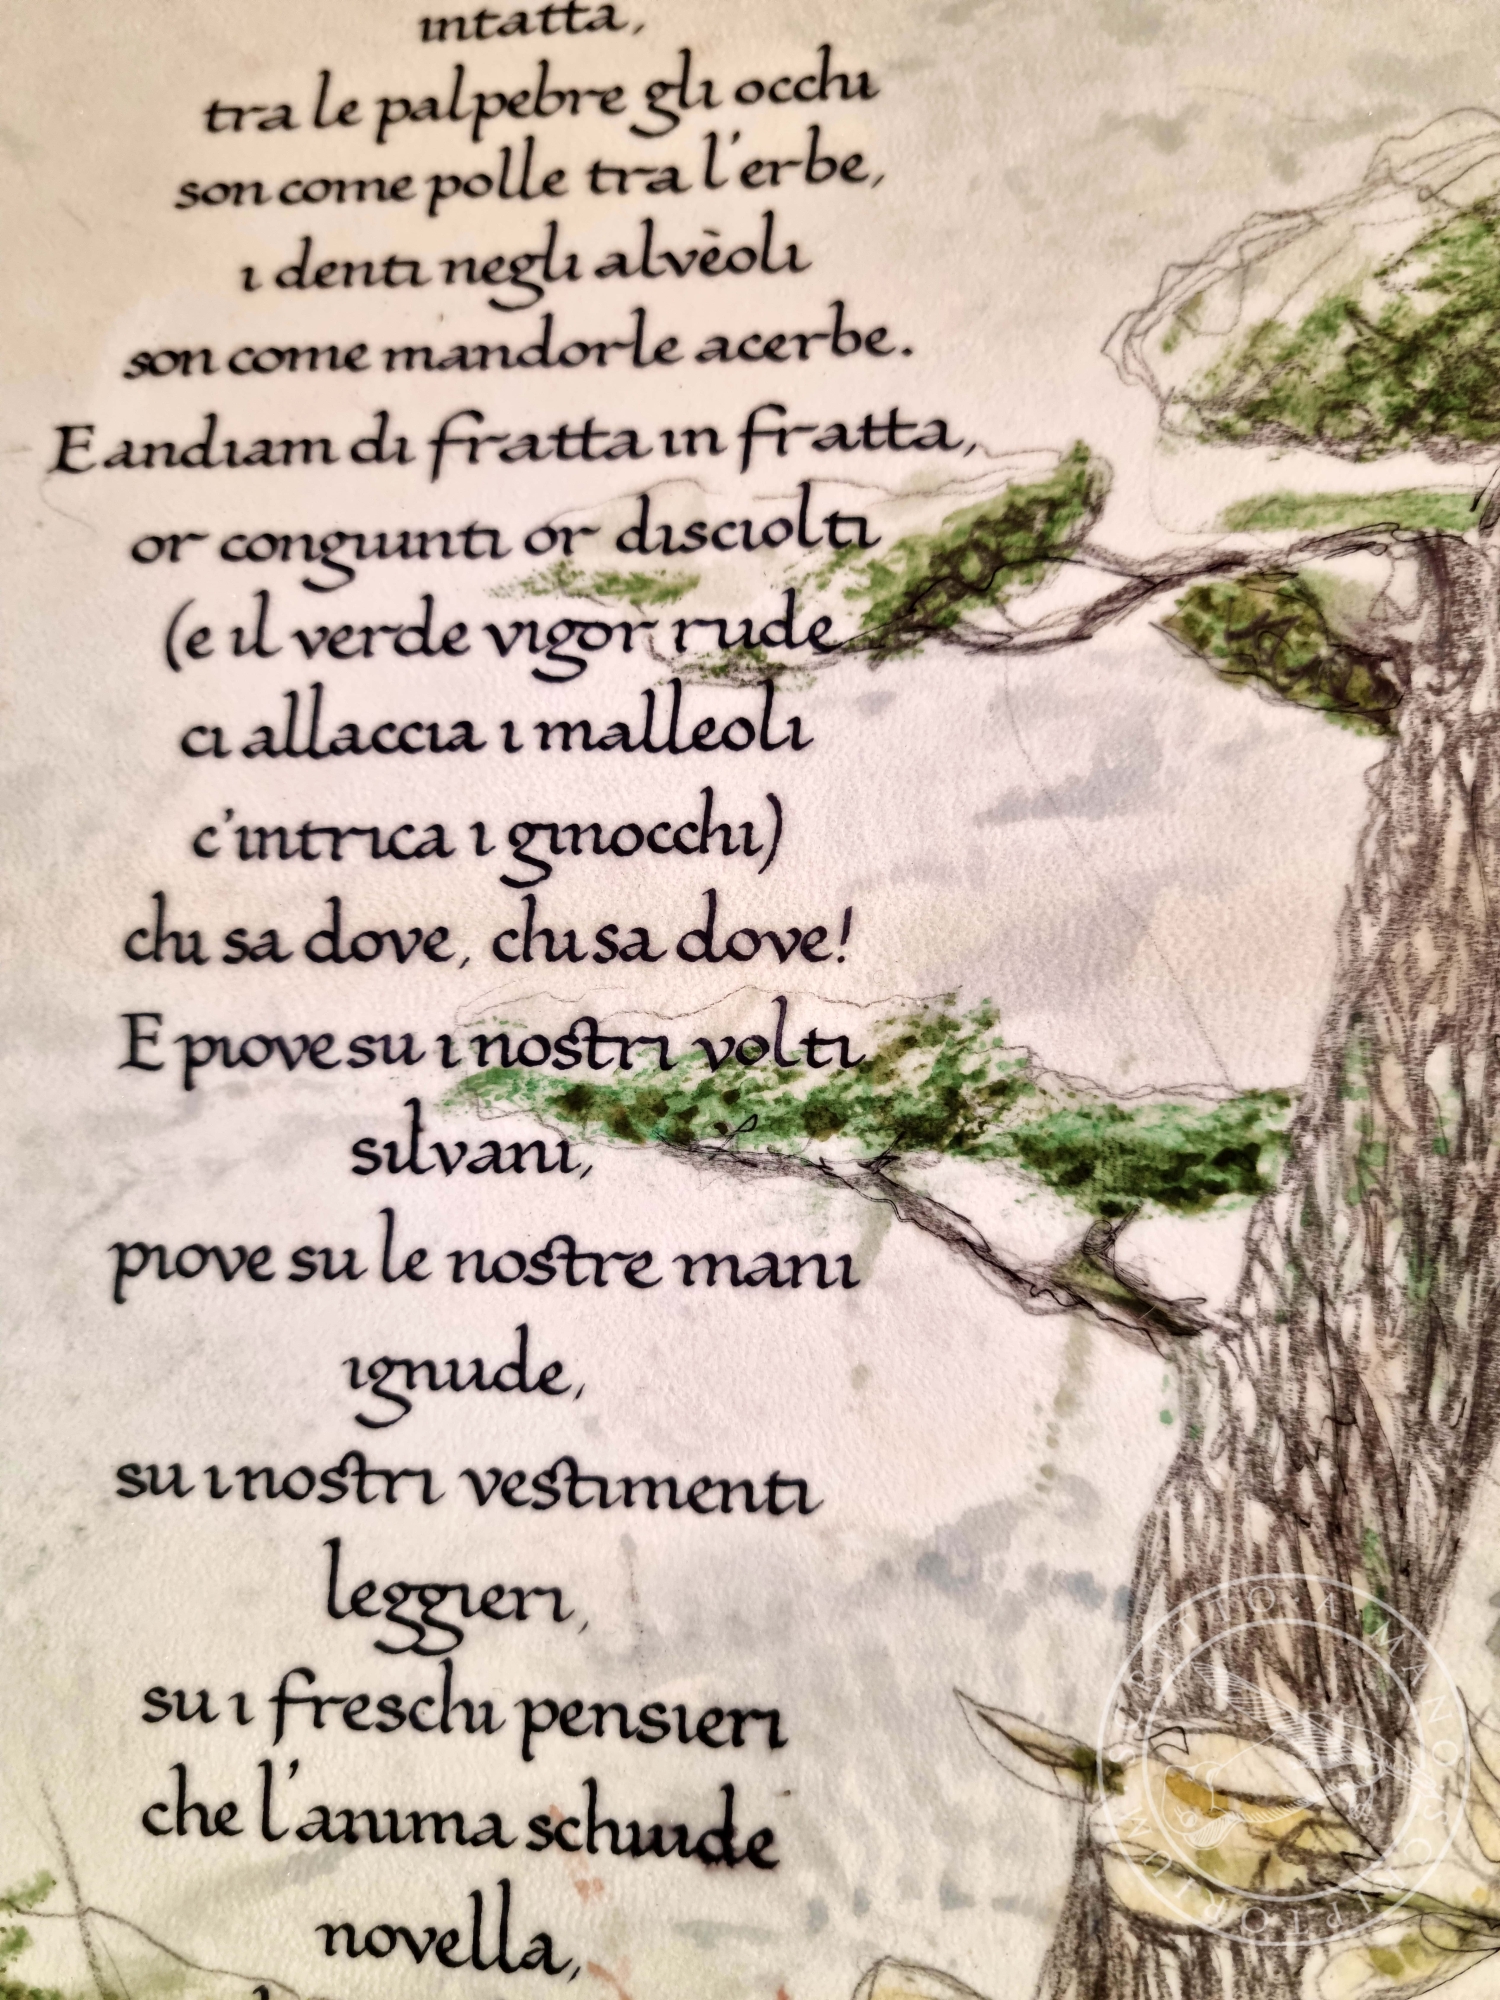 intatta,
tra le palpebre gli occhi
son come polle tra l'erbe,
i denti negli alvèoli
son come mandorle acerbe.
E andiam di fratta in fratta,
or congiunti or disciolti
(e il verde vigor rude
ci allaccia i malleoli
c'intrica i ginocchi)
chi sa dove, chi sa dove!
E piove su i nostri volti
silvani,
piove su le nostre mani
ignude,
su i nostri vestimenti
leggieri,
su i freschi pensieri
che l'anima schiude
novella,